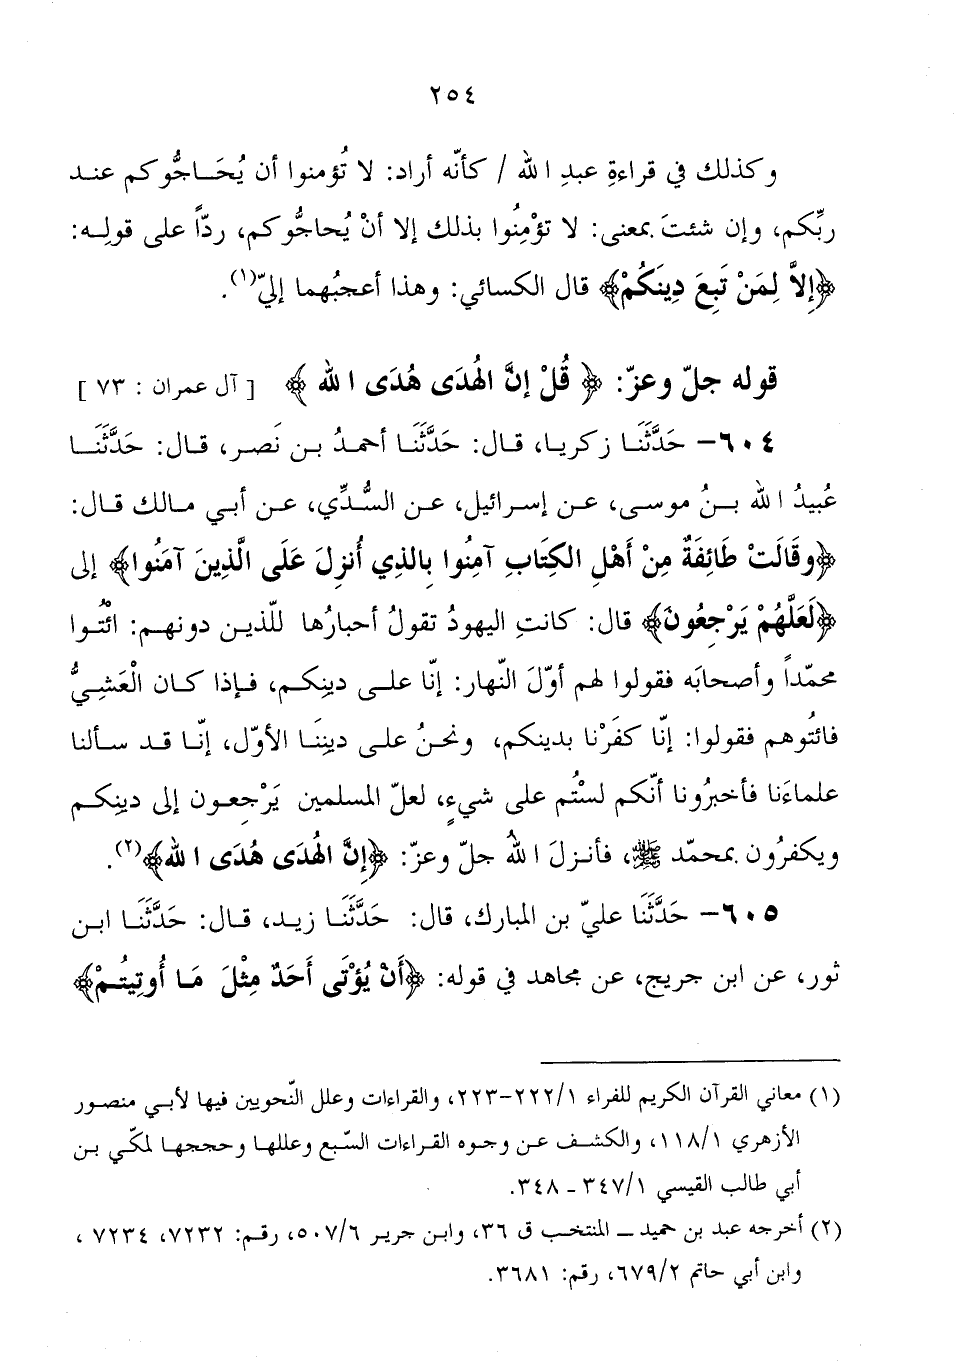 ٢٥٤
وكذلك في قراءةِ عبدِ الله / كأنّه أراد: لا تُؤمنوا أن يُحَـاجُّوكم عنـد
ربِّكم، وإن شئتَ بمعنى: لا تؤْمِنُوا بذلك إلا أنْ يُحاجُّوكم، ردّاً على قولِـه:
﴿إِلاَّ لِمَنْ تَبِعَ دِينَكُمْ﴾ قال الكسائي: وهذا أعجبُهما إليّ(١).
قوله جلّ وعزّ: ﴿ قُلْ إنَّ الهُدَى هُدَى الله ﴾ [ آل عمران : ٧٣ ]
٦٠٤– حَدَّثَنَا زكريـا، قـال: حَدَّثَنَـا أحمدُ بـن نَصـر، قـال: حَدَّثَنَــا
عُبيدُ الله بــنُ موسـى، عـن إسـرائيل، عـن السُّـدِّي، عـن أبـي مـالك قـال:
﴿وقَالَتْ طَائِفَةٌ مِنْ أَهْلِ الكِتَابِ آمِنُوا بِالذِي أُنزِلَ عَلَى الَّذِينَ آمَنُوا﴾ إلى
﴿لَعَلَّهُمْ يَرْجِعُونَ﴾ قال: كانتِ اليهودُ تقولُ أحبارُها للّذيـن دونهـم: ائتُـوا
محمّداً وأصحابَه فقولوا لهم أوّلَ النّهار: إنّا علـى دينِكـم، فـإذا كـان الْعَشِـيُّ
فائتُوهم فقولوا: إنّا كفَرْنا بدينكم، ونحـنُ علـى ديننَـا الأوّل، إنّـا قـد سـألنا
علماءَنا فأخبرُونا أنّكم لستُم على شيءٍ، لعلّ المسلمين يَرْجِعـون إلى دينِكـم
ويكفرُون بمحمّد ﷺ، فأنـزلَ اللهُ جلّ وعزّ: ﴿إنَّ الهُدَى هُدَى الله﴾(٢).
٦٠٥– حَدَّثَنَا عليّ بن المبارك، قال: حَدَّثَنَـا زيـد، قـال: حَدَّثَنَـا ابـن
ثور، عن ابن جريج، عن مجاهد في قوله: ﴿أَنْ يُؤْتَى أَحَدٌ مِثْلَ مَـا أُوتِيتُـمْ﴾
(١) معاني القرآن الكريم للفراء ٢٢٢/١–٢٢٣، والقراءات وعلل النّحويين فيها لأبـي منصـور
الأزهري ١١٨/١، والكشف عـن وجـوه القـراءات السّبع وعللهـا وحججهـا لمكّـي بـن
أبي طالب القيسي ٣٤٧/١ - ٣٤٨.
(٢) أخرجه عبد بن حميد ــ المنتخـب ق ٣٦، وابـن جريـر ٥٠٧/٦، رقـم: ٧٢٣٢، ٧٢٣٤ ،
وابن أبي حاتم ٦٧٩/٢، رقم: ٣٦٨١.